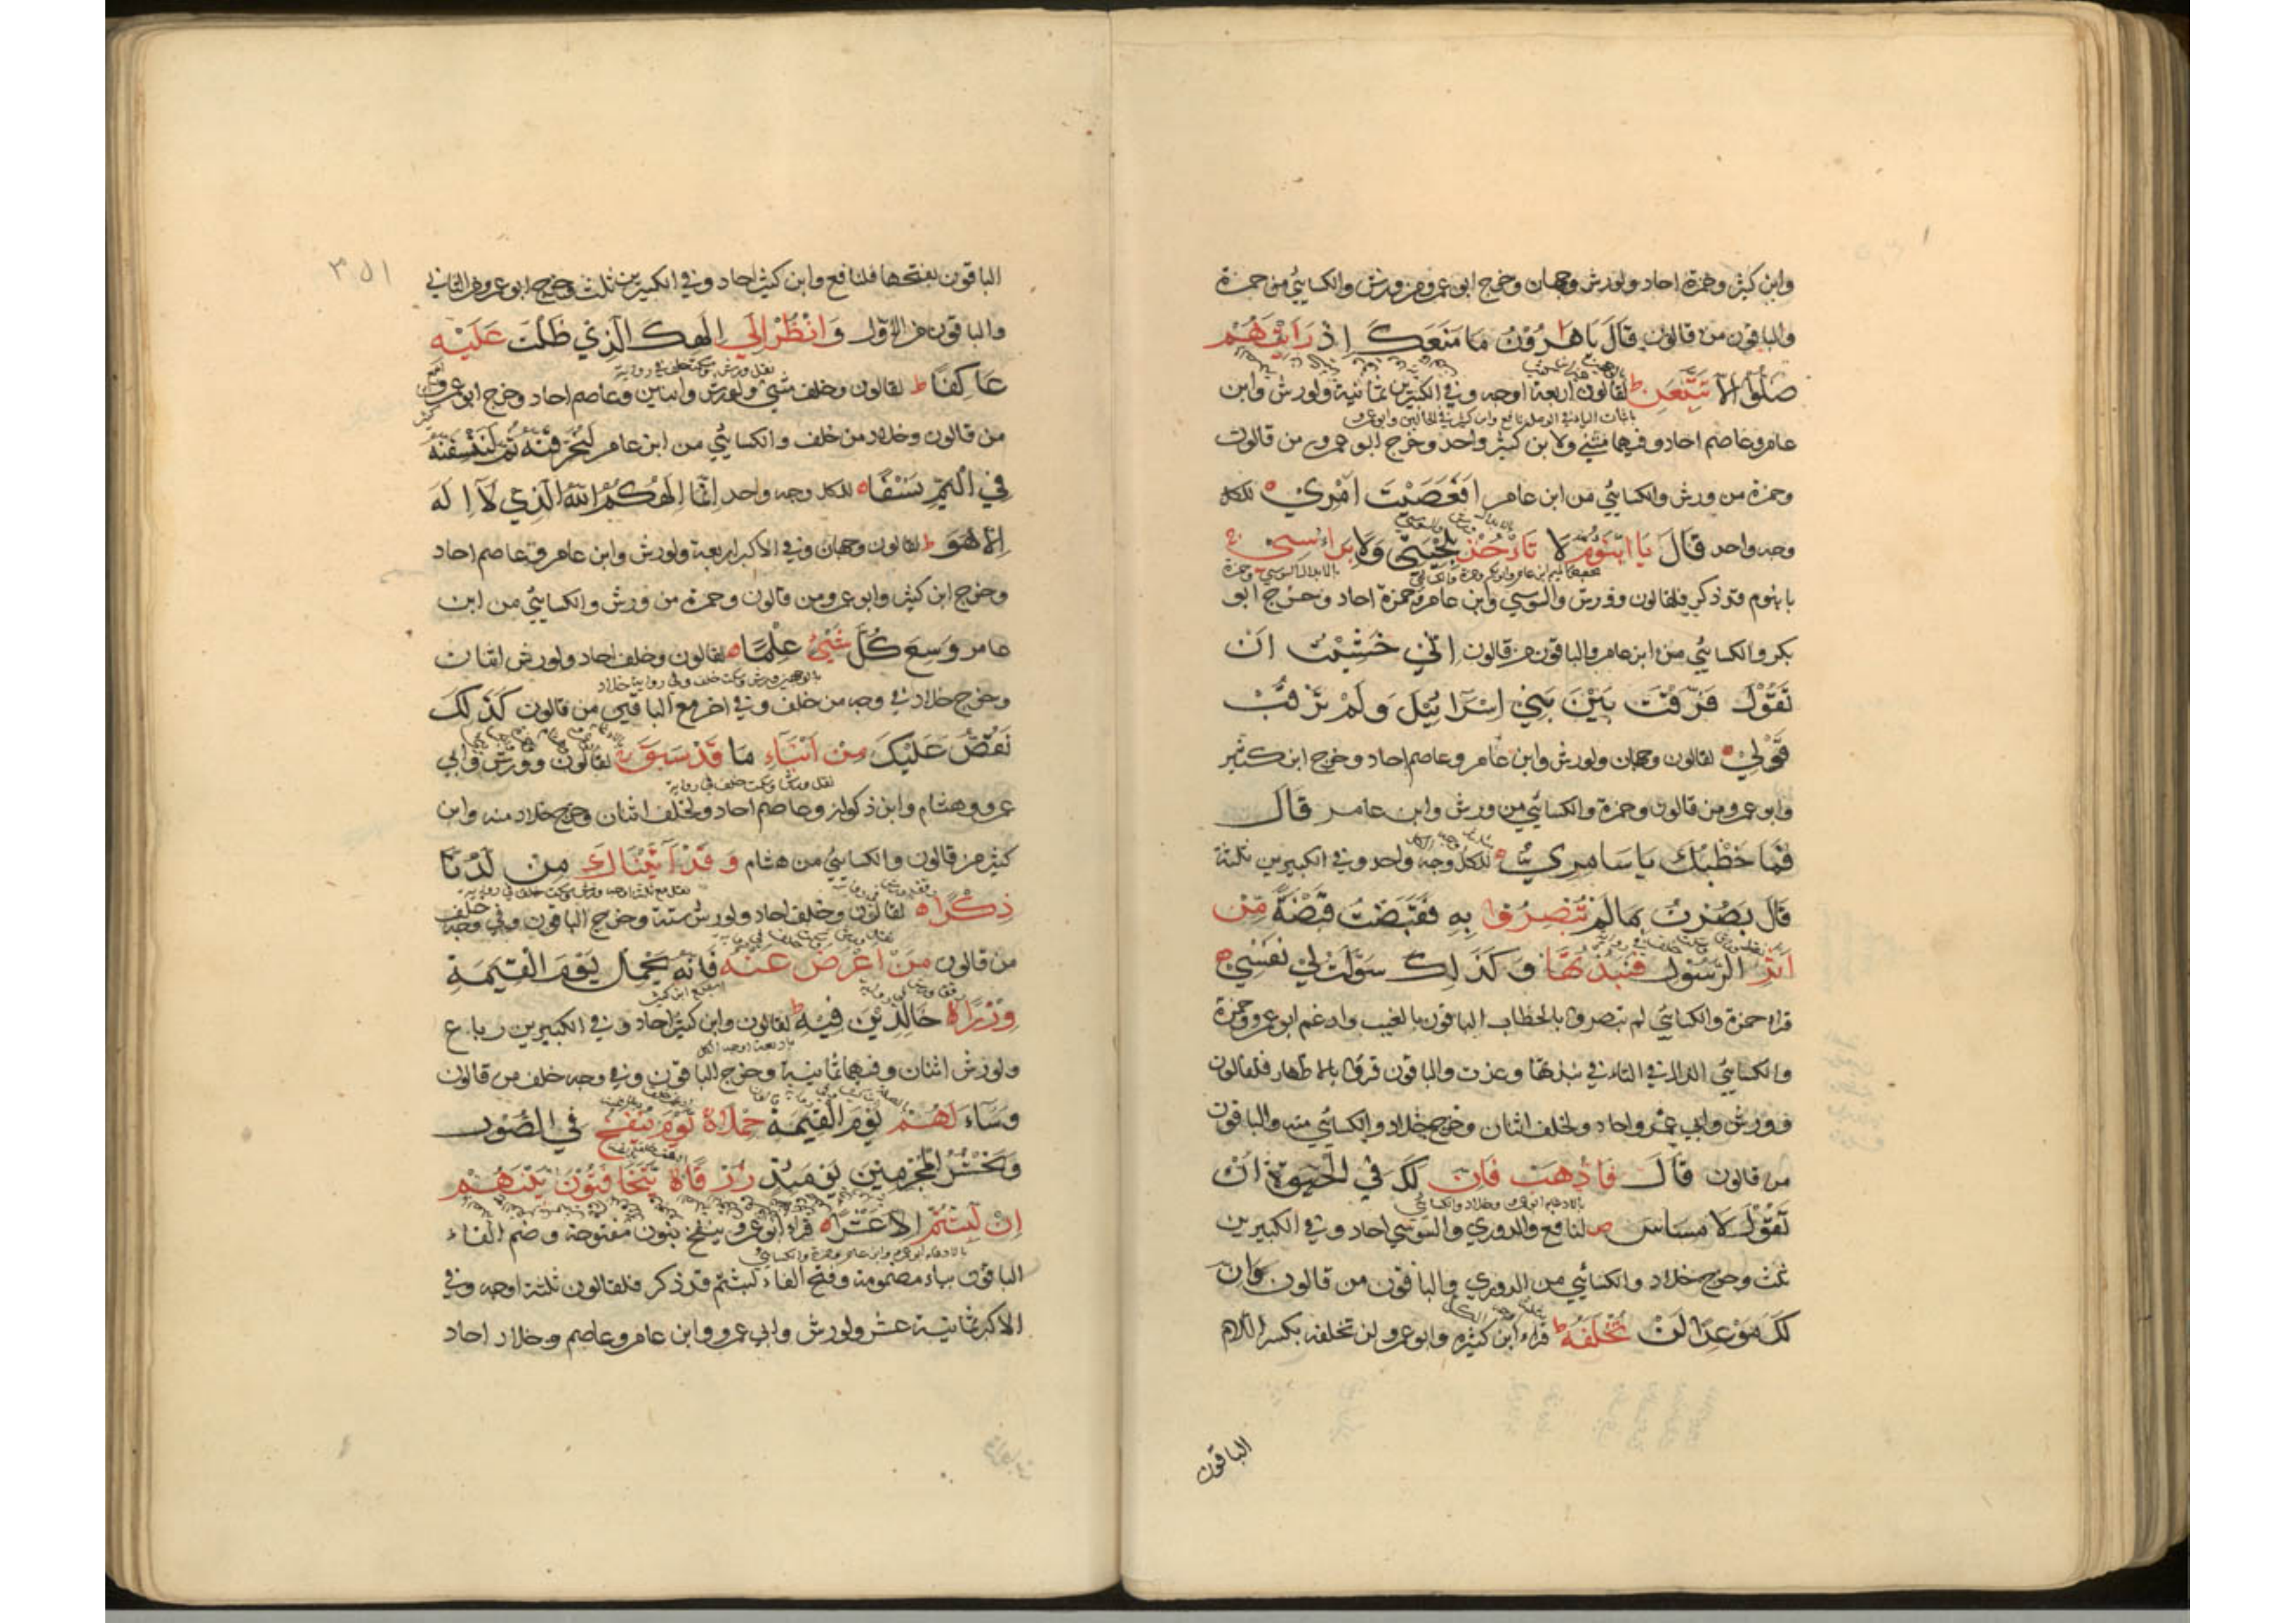 وابن كثير وحمزة احاد ولورش وجهان وخرج ابو عمرو من ورش والكسائي من حمزة
والباقون من قالون قَالَ يَاهَرُوْنُ مَا مَنَعَكَ اِذْ رَاَيْتَهُمْ
ضَلُّوْا اَلَّا تَتَّبِعَنِ ط لقالون اربعة اوجه وفي الكبيرين ثمانية ولورش وابن
باثبات الياء في الوصل نافع وابن كثير في الحالين وابو عمرو
عامر وعاصم احاد وفيهما مثنى ولابن كثير واحد وخرج ابو عمرو من قالون
وحمزة من ورش والكسائي من ابن عامر اَفَعَصَيْتَ اَمْرِيْ ه للكل
وجه واحد قَالَ يَا ابْنَؤُمَّ لَا تَاْخُذْ بِلِحْيَتِيْ وَلَا بِرَاْسِيْ ج
يابنوم قد ذكر فلقالون وورش والسوسي وابن عامر وحمزة احاد وخرج ابو
بكر والكسائي من ابن عامر والباقون من قالون اِنِّيْ خَشِيْتُ اَنْ
تَقُوْلَ فَرَّقْتَ بَيْنَ بَنِيْ اِسْرَآئِيْلَ وَلَمْ تَرْقُبْ
قَوْلِيْ ه لقالون وجهان ولورش وابن عامر وعاصم احاد وخرج ابن كثير
وابو عمرو من قالون وحمزة والكسائي من ورش وابن عامر قَالَ
فَمَا خَطْبُكَ يَا سَامِرِيُّ ه للكل وجه واحد وفي الكبيرين ثلثة
قَالَ بَصُرْتُ بِمَا لَمْ تُبْصِرُوْا بِهٖ فَقَبَضْتُ قَبْضَةً مِّنْ
اَثَرِ الرَّسُوْلِ فَنَبَذْتُهَا وَكَذٰلِكَ سَوَّلَتْ لِيْ نَفْسِيْ ه
قراء حمزة والكسائي لم تبصروا بالخطاب الباقون بالغيب وادغم ابو عمرو وحمزة
والكسائي الذال في التاء في نبذتها وعذت والباقون قرؤا بالاظهار فلقالون
وورش وابي عمرو احاد ولخلف اثنان وخرج خلاد والكسائي منه والباقون
من قالون قَالَ فَاذْهَبْ فَاِنَّ لَكَ فِي الْحَيٰوةِ اَنْ
بالادغام ابو عمرو وخلاد والكسائي
تَقُوْلَ لَا مِسَاسَ ص لنافع والدوري والسوسي احاد وفي الكبيرين
ثلث وخرج خلاد والكسائي من الدوري والباقون من قالون وَاِنَّ
لَكَ مَوْعِدًا لَنْ تُخْلَفَهٗ ط قراء ابن كثير وابو عمرو لن تخلفه بكسر اللام
الباقون
٣٥١
الباقون بفتحها فلنافع وابن كثير احاد وفي الكبيرين ثلث وخرج ابو عمرو من الثاني
والباقون من الاول وَانْظُرْ اِلٰى اِلٰهِكَ الَّذِيْ ظَلْتَ عَلَيْهِ
نقل ورش وسكت خلف في رواية
عَاكِفًا ط لقالون وخلف مثنى ولورش وعاصم احاد وخرج ابو عمرو
من قالون وخلاد من خلف والكسائي من ابن عامر لَنُحَرِّقَنَّهٗ ثُمَّ لَنَنْسِفَنَّهٗ
فِي الْيَمِّ نَسْفًا ه للكل وجه واحد اِنَّمَا اِلٰهُكُمُ اللّٰهُ الَّذِيْ لَآ اِلٰهَ
اِلَّا هُوَ ط لقالون وجهان وفي الاكبر اربعة ولورش وابن عامر وعاصم احاد
وخرج ابن كثير وابو عمرو من قالون وحمزة من ورش والكسائي من ابن
عامر وَسِعَ كُلَّ شَيْءٍ عِلْمًا ه لقالون وخلف احاد ولورش اثنان
وخرج خلاد في وجه من خلف وفي اخر مع الباقين من قالون كَذٰلِكَ
نَقُصُّ عَلَيْكَ مِنْ اَنْبَآءِ مَا قَدْ سَبَقَ لقالون وورش وابي
نقل ورش وسكت خلف في رواية
عمرو وهشام وابن ذكوان وعاصم احاد ولخلف اثنان وخرج خلاد منه وابن
كثير من قالون والكسائي من هشام وَقَدْ اٰتَيْنَاكَ مِنْ لَدُنَّا
ذِكْرًا ه لقالون وخلف احاد ولورش ستة وخرج الباقون وفي وجه خلف
من قالون مَنْ اَعْرَضَ عَنْهُ فَاِنَّهٗ يَحْمِلُ يَوْمَ الْقِيٰمَةِ
وِزْرًا ه خَالِدِيْنَ فِيْهِ ط لقالون وابن كثير احاد وفي الكبيرين رباع
ولورش اثنان وفيهما ثمانية وخرج الباقون وفي وجه خلف من قالون
وَسَآءَ لَهُمْ يَوْمَ الْقِيٰمَةِ حِمْلًا ه يَوْمَ يُنْفَخُ فِي الصُّوْرِ
وَنَحْشُرُ الْمُجْرِمِيْنَ يَوْمَئِذٍ زُرْقًا ه يَتَخَافَتُوْنَ بَيْنَهُمْ
اِنْ لَبِثْتُمْ اِلَّا عَشْرًا ه قراء ابو عمرو ينفخ بنون مفتوحة وضم الفاء
بالادغام ابو عمرو وابن عامر وحمزة والكسائي
الباقون بياء مضمومة وفتح الفاء لبثتم قد ذكر فلقالون ثلثة اوجه وفي
الاكبر ثمانية عشر ولورش وابي عمرو وابن عامر وعاصم وخلاد احاد